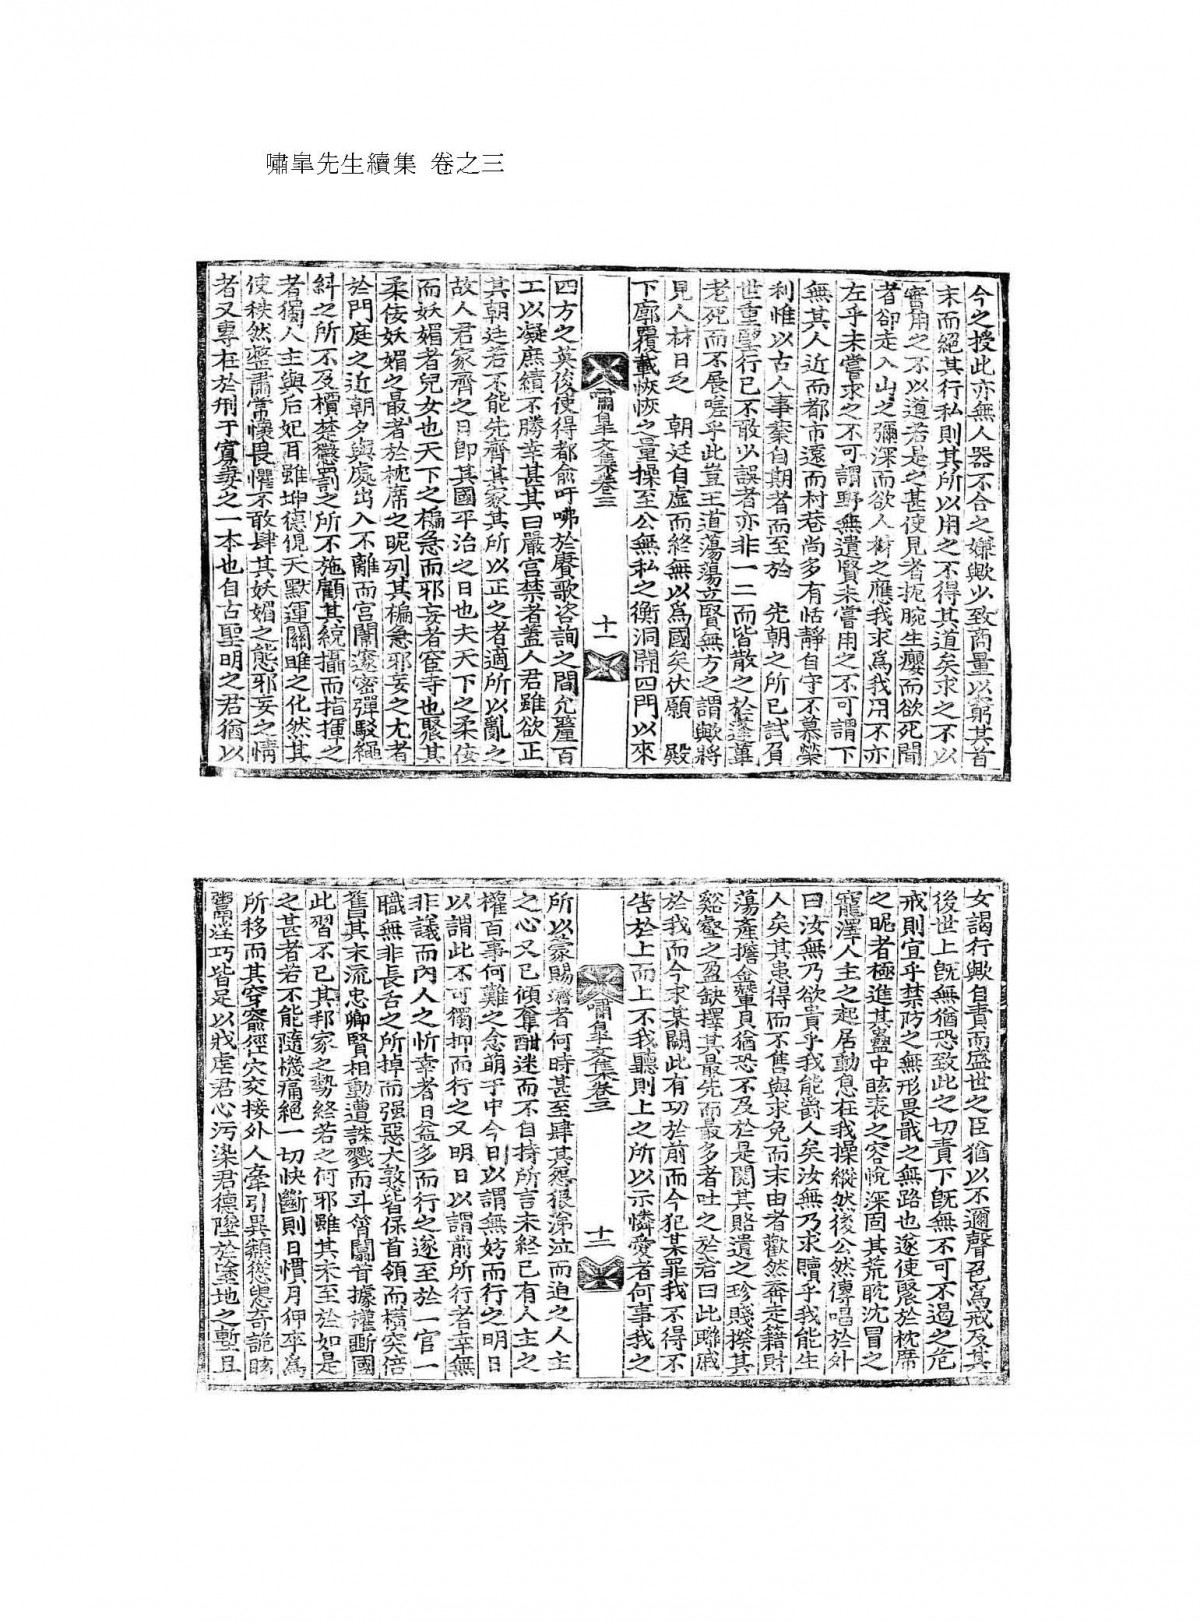 嘯皐先生續集 卷之三
今之授此亦無人器不合之嫌歟必致商量以窮其首
末而絕其行私則其所以用之不得其道矣求之不以
實用之不以道若是之甚使見者扼腕生癭而欲死聞
者卻走入山之彌深而欲人材之應我求爲我用不亦
左乎未嘗求之不可謂野無遺賢未嘗用之不可謂下
無其人近而都市遠而村巷尚多有恬靜自守不慕榮
利惟以古人事業自期者而至於 先朝之所已試負
世重望行已不敢以誤者亦非一二而皆散之於蓬蓽
老死而不展嗟乎此豈王道蕩蕩立賢無方之謂歟將
見人材日乏 朝廷自虛而終無以爲國矣伏願 殿
下廓覆載恢恢之量操至公無私之衡洞開四門以來
嘯皐文集卷三
十一
四方之英俊使得都俞吁咈於賡歌咨詢之間允釐百
工以凝庶績不勝幸甚其曰嚴宮禁者蓋人君雖欲正
其朝廷若不能先齊其家其所以正之者適所以亂之
故人君家齊之日卽其國平治之日也夫天下之柔佞
而妖媚者兒女也天下之褊急而邪妄者宦寺也聚其
柔佞妖媚之最者於枕席之昵列其褊急邪妄之尤者
於門庭之近朝夕與處出入不離而宮闈邃密彈駁繩
糾之所不及檟楚懲罰之所不施顧其統攝而指揮之
者獨人主與后妃耳雖坤德俔天默運關雎之化然其
使秩然整肅常懷畏懼不敢肆其妖媚之態邪妄之情
者又專在於刑于寡妻之一本也自古聖明之君猶以
女謁行歟自責而盛世之臣猶以不邇聲色爲戒及其
後世上旣無猶恐致此之切責下旣無不可不遏之危
戒則宜乎禁防之無形畏戢之無路也遂使褻於枕席
之昵者極進其蠱中眩衷之容悅深固其荒耽沈冒之
寵澤人主之起居動息在我操縱然後公然傳唱於外
曰汝無乃欲貴乎我能爵人矣汝無乃求贖乎我能生
人矣其患得而不售與求免而末由者歡然奔走籍財
蕩產擔金輦貝猶恐不及於是閱其賂遺之珍賤揆其
谿壑之盈缺擇其最先而最多者吐之於君曰此聯戚
於我而今求某闕此有功於前而今犯某罪我不得不
告於上而上不我聽則上之所以示憐愛者何事我之
嘯皐文集卷三
十二
所以蒙賜濟者何時甚至肆其怨狠涕泣而迫之人主
之心又已傾奪酣迷而不自持所言未終已有人主之
權百事何難之念萌于中今日以謂無妨而行之明日
以謂此不可獨抑而行之又明日以謂前所行者幸無
非議而內人之忻幸者日益多而行之遂至於一官一
職無非長舌之所掉而强惡大憝皆保首領而橫突倍
舊其末流忠卿賢相動遭誅戮而斗筲闒茸據權斷國
此習不已其邦家之勢終若之何邪雖其未至於如是
之甚者若不能隨機痛絕一切快斷則日慣月狎卒爲
所移而其穿窬徑穴交接外人牽引異類慫慂奇詭眩
鬻淫巧皆足以戕虐君心污染君德墜於塗地之塹且